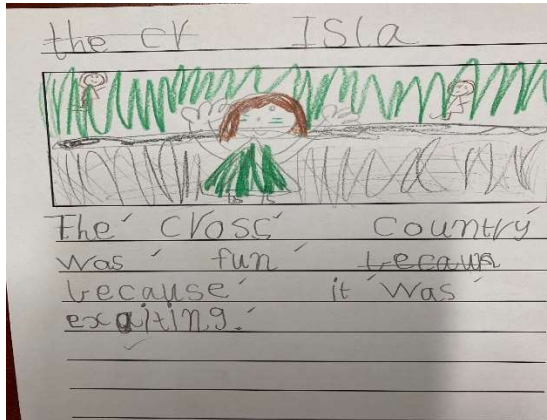 the cr Isla
The cross country
was fun becaus
because it was
exaiting.